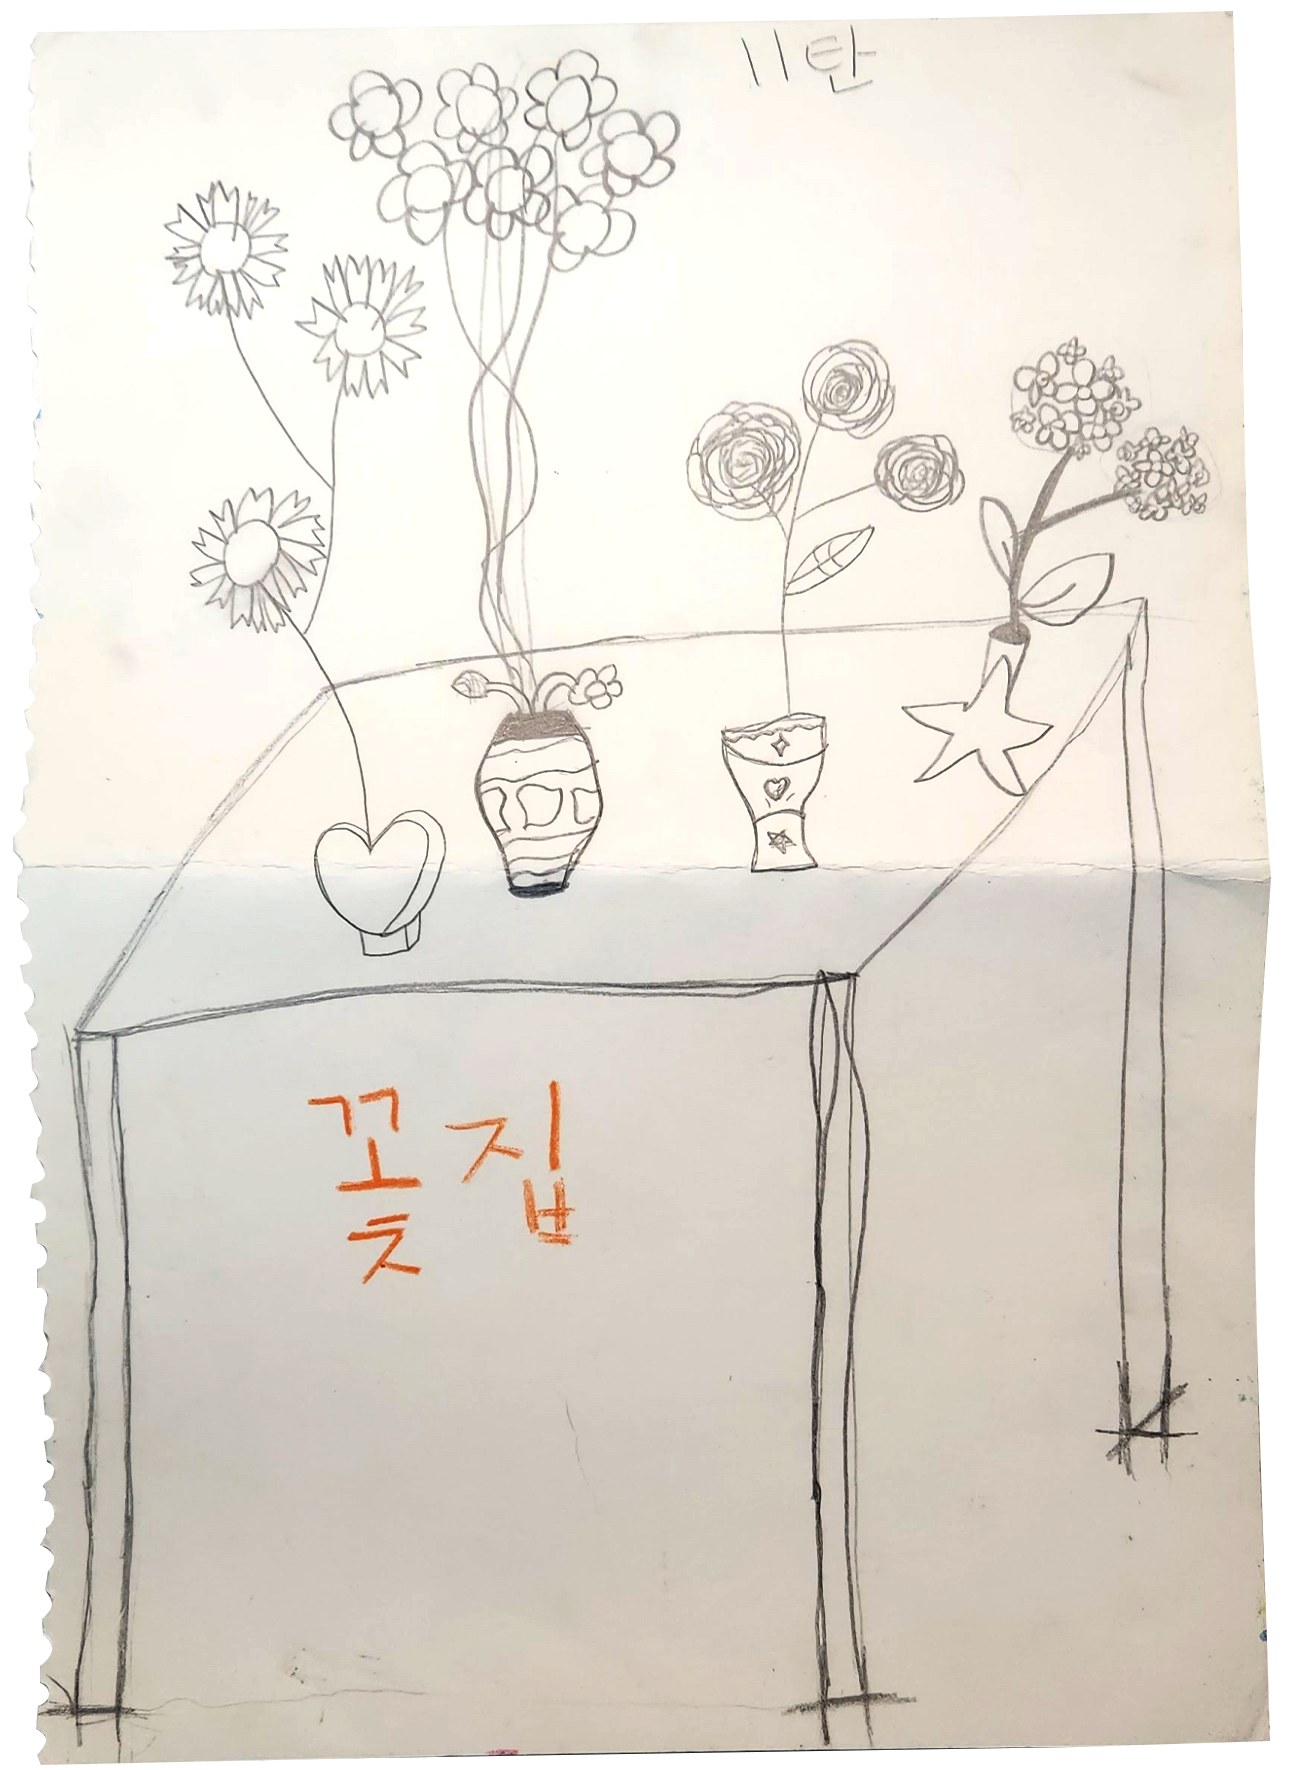 11탄
꽃집